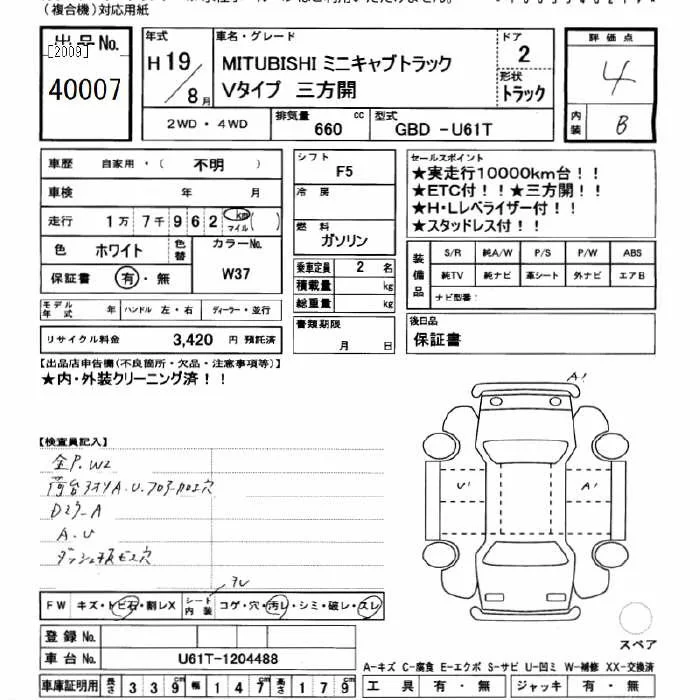 (複合機)対応用紙
出品No.
[2009]
40007
年式
H 19/8月
車名・グレード
MITUBISHI ミニキャブトラック
Vタイプ 三方開
ドア
2
形状
トラック
評価点
4
内装
B
2WD・4WD
排気量
660 cc
型式
GBD -U61T
車歴 自家用・( 不明 )
車検 年 月
走行 1万 7千 9 6 2 km マイル( )
色 ホワイト
色替
カラーNo.
W37
保証書 有・無
モデル年式 年
ハンドル 左・右
ディーラー・並行
リサイクル料金 3,420 円 預託済
シフト
F5
冷房
燃料
ガソリン
乗車定員 2 名
積載量 kg
総重量 kg
書類期限
月 日
セールスポイント
★実走行10000km台!!
★ETC付!!★三方開!!
★H・Lレベライザー付!!
★スタッドレス付!!
装備品
S/R 純A/W P/S P/W ABS
純TV 純ナビ 革シート 外ナビ エアB
ナビ型番:
後日品
保証書
【出品店申告欄(不良箇所・欠品・注意事項等)】
★内・外装クリーニング済!!
【検査員記入】
全P.W2
荷台アオリA.U.フロアー加工穴
Dミラ-A
A.U
ダッシュ板ビス穴
A1
U1
A1
FW キズ・トビ石・割レX
シート内装
コゲ・穴・汚レ・シミ・破レ・スレ
登録No.
車台No. U61T-1204488
スペア
A-キズ C-腐食 E-エクボ S-サビ U-凹ミ W-補修 XX-交換済
車庫証明用 長さ 3 3 9 cm 幅 1 4 7 cm 高さ 1 7 9 cm
工具 有・無 ジャッキ 有・無